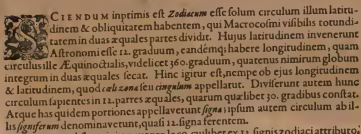 SCIENDUM inprimis est Zodiacum esse solum circulum illum latitu-
dinem & obliquitatem habentem, qui Macrocosmi visibilis rotundi-
tatem in duas æquales partes dividit. Hujus latitudinem invenerunt
Astronomi esse 12. graduum, eandémq; habere longitudinem, quam
circulus ille Æquinoctialis, videlicet 360. graduum, quatenus nimirum globum
integrum in duas æquales secat. Hinc igitur est, nempe ob ejus longitudinem
& latitudinem, quod cœli zona seu cingulum appellatur. Diviserunt autem hunc
circulum sapientes in 12. partes æquales, quarum quælibet 30. gradibus constat.
Atque has quidem portiones appellaverunt signa: ipsum autem circulum abil-
lis signiferum denominaverunt, quasi 12. signa ferentem.